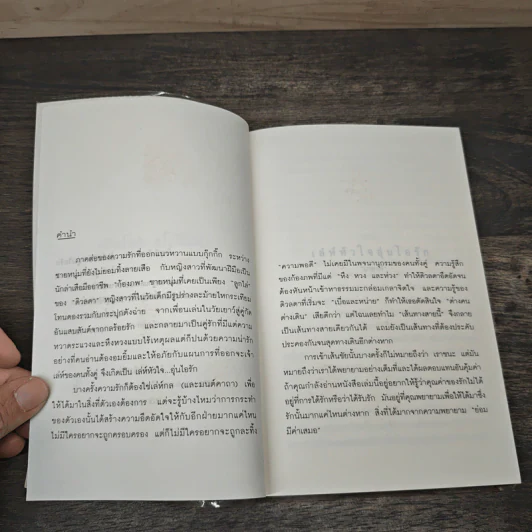 คำนำ
ภาคต่อของความรักที่ออกแนวหวานแบบกุ๊กกิ๊ก ระหว่าง
ชายหนุ่มที่ยังไม่ยอมทิ้งลายเสือ กับหญิงสาวที่พัฒนาฝีมือเป็น
นักล่าเสือมืออาชีพ "ก้องภพ" ชายหนุ่มที่เคยเป็นเพียง "ลูกไล่"
ของ "ดิวลดา" หญิงสาวที่ในวัยเด็กมีรูปร่างละม้ายไหกระเทียม
โทนดองรวมกับกระปุกตังฉ่าย จากเพื่อนเล่นในวัยเยาว์สู่คู่กัด
อันแสนสันต์จากกลร้อยรัก และกลายมาเป็นคู่รักที่มีแต่ความ
หวาดระแวงและหึงหวงแบบไร้เหตุผลแต่ก็ปนด้วยความน่ารัก
อย่างที่คนอ่านต้องอมยิ้มและให้อภัยกับแผนการที่ออกจะเจ้า
เล่ห์ของคนทั้งคู่ จึงเกิดเป็น เล่ห์หัวใจ...อุ่นไอรัก
บางครั้งความรักก็ต้องใช้เล่ห์กล (และมนต์คาถา) เพื่อ
ให้ได้มาในสิ่งที่ตัวเองต้องการ แต่จะรู้บ้างไหมว่าการกระทำ
ของตัวเองนั้นได้สร้างความอึดอัดใจให้กับอีกฝ่ายมากแค่ไหน
ไม่มีใครอยากจะถูกครอบครอง แต่ก็ไม่มีใครอยากจะถูกละทิ้ง
"ความพอดี" ไม่เคยมีในพจนานุกรมของคนทั้งคู่ ความรู้สึก
ของก้องภพที่มีแต่ "หึง หวง และห่วง" ทำให้ดิวลดาอึดอัดจน
ต้องหันหน้าเข้าหาธรรมมะกล่อมเกลาจิตใจ และความรู้ของ
ดิวลดาที่เริ่มจะ "เบื่อและหน่าย" ก็ทำให้เธอตัดสินใจ "ต่างคน
ต่างเดิน" เสียดีกว่า แต่ใครเลยทำไม "เส้นทางสายนี้" จึงกลาย
เป็นเส้นทางสายเดียวกันได้ แถมยังเป็นเส้นทางที่ต้องประคับ
ประคองกันจนสุดทางเดินอีกต่างหาก
การเข้าเส้นชัยนั้นบางครั้งก็ไม่หมายถึงว่า เราชนะ แต่มัน
หมายถึงว่าเราได้พยายามอย่างเต็มที่และได้ผลตอบแทนอันคุ้มค่า
ถ้าคุณกำลังอ่านหนังสือเล่มนี้อยู่อยากให้รู้ว่าคุณค่าของรักไม่ได้
อยู่ที่การได้รักหรือว่าได้รับรัก มันอยู่ที่คุณพยายามเพื่อให้ได้มาซึ่ง
รักนั้นมากแค่ไหนต่างหาก สิ่งที่ได้มากจากความพยายาม "ย่อม
มีค่าเสมอ"